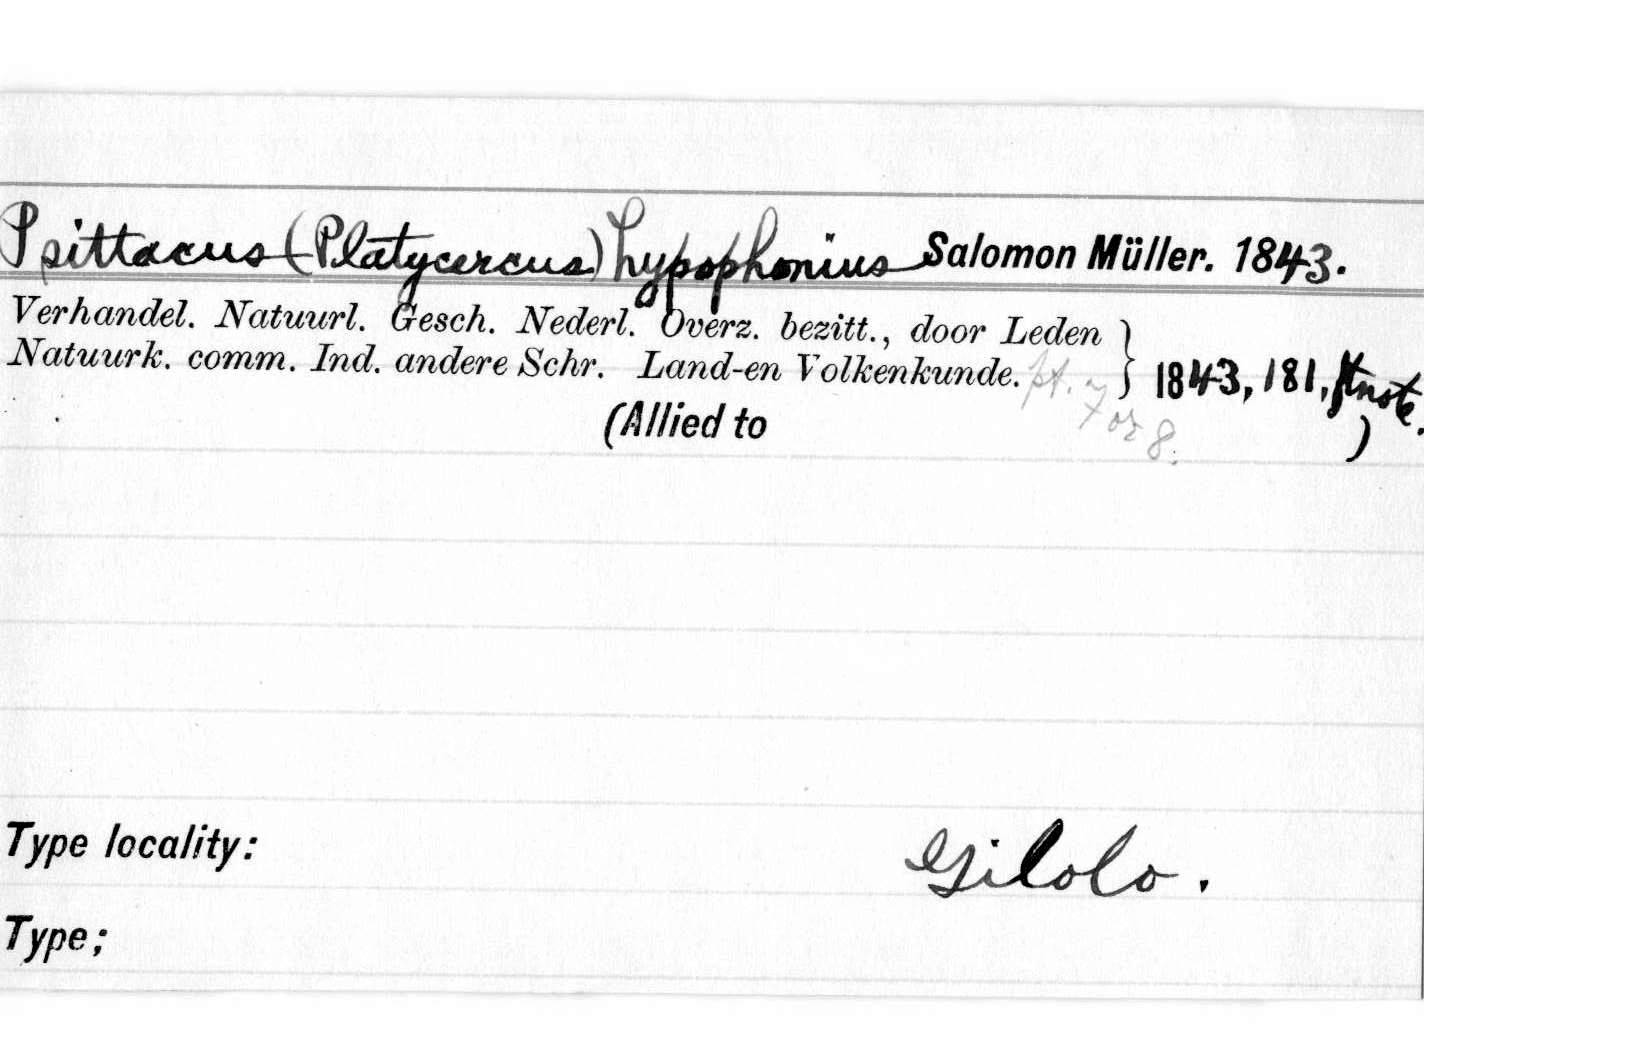 Psittacus (Platycercus) hypophonius Salomon Müller. 1843.
Verhandel. Natuurl. Gesch. Nederl. Overz. bezitt., door Leden }
Natuurk. comm. Ind. andere Schr. Land-en Volkenkunde. pt. 7 or 8. } 1843, 181, ftnote.
(Allied to )
Type locality: Gilolo.
Type;